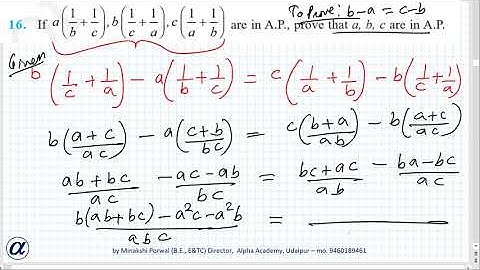 To Prove: b-a = c-b
16. If a(1/b + 1/c), b(1/c + 1/a), c(1/a + 1/b) are in A.P., prove that a, b, c are in A.P.
Given
b(1/c + 1/a) - a(1/b + 1/c) = c(1/a + 1/b) - b(1/c + 1/a)
b((a+c)/ac) - a((c+b)/bc) = c((b+a)/ab) - b((a+c)/ac)
(ab+bc)/ac (-ac-ab)/bc = (bc+ac)/ab (-ba-bc)/ac
(b(ab+bc)-a²c-a²b)/abc =
α by Minakshi Porwal (B.E., E&TC) Director, Alpha Academy, Udaipur – mo. 9460189461